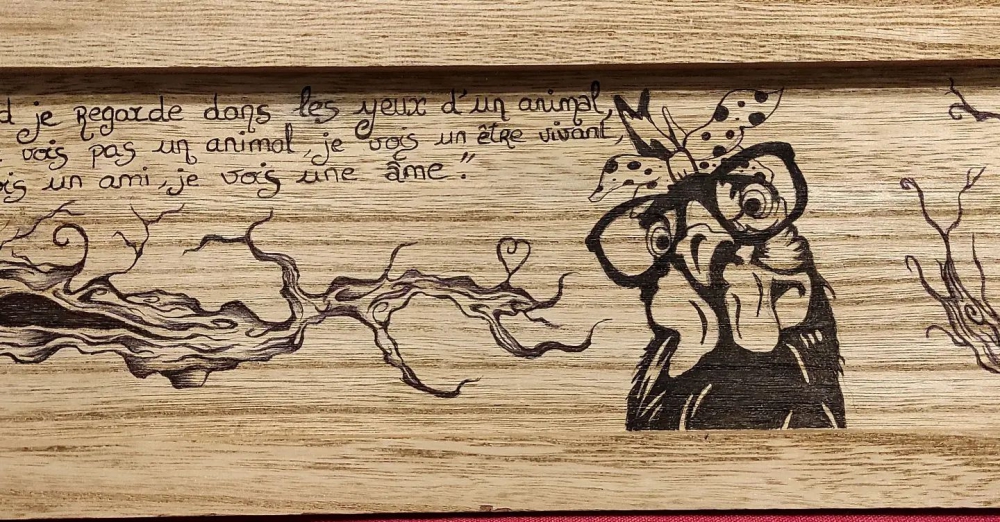 d je Regarde dans les yeux d'un animal,
vois pas un animal, je vois un être vivant,
is un ami, je vois une âme."